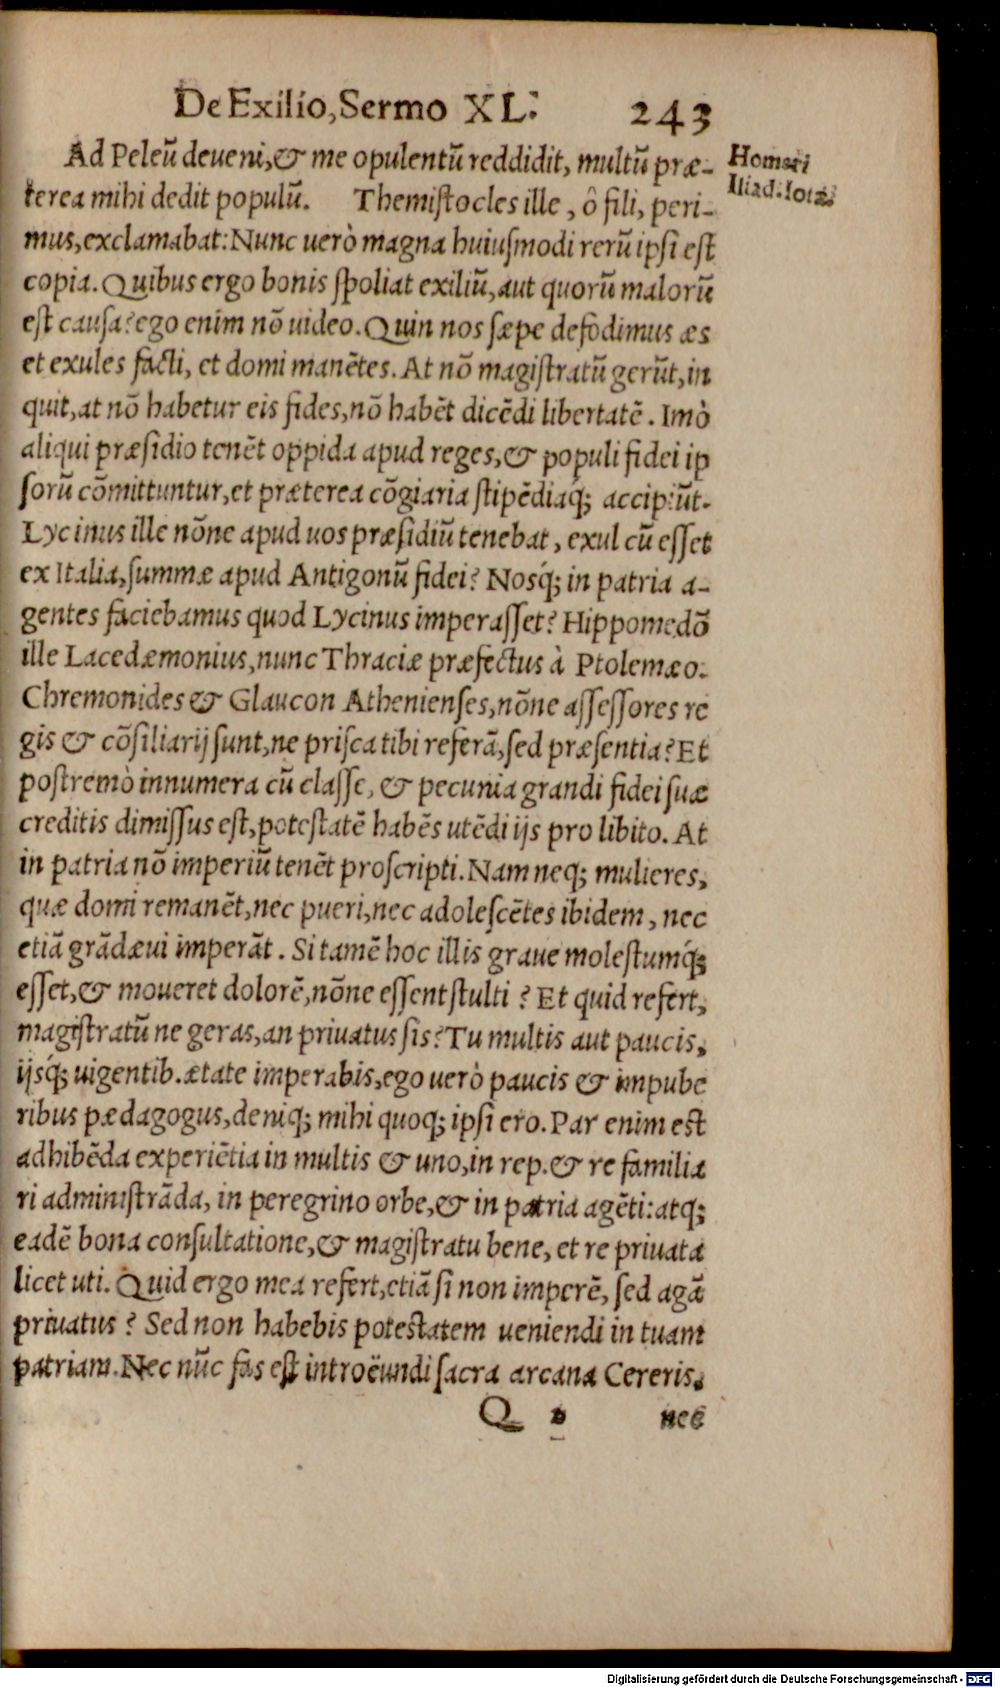 De Exilio, Sermo XL. 243
Ad Peleū deveni, & me opulentū reddidit, multū præ-
terea mihi dedit populū. Themistocles ille, ô fili, peri-
mus, exclamabat: Nunc uerò magna huiusmodi rerū ipsi est
copia. Quibus ergo bonis spoliat exiliū, aut quorū malorū
est causa? ego enim nō uideo. Quin nos sæpe defodimus æs
et exules facti, et domi manētes. At nō magistratū gerūt, in
quit, at nō habetur eis fides, nō habēt dicēdi libertatē. Imò
aliqui præsidio tenēt oppida apud reges, & populi fidei ip
sorū cōmittuntur, et præterea cōgiaria stipēdiaq́; accipiūt.
Lycinus ille nōne apud uos præsidiū tenebat, exul cū esset
ex Italia, summæ apud Antigonū fidei? Nosq́; in patria a-
gentes faciebamus quod Lycinus imperasset? Hippomedō
ille Lacedæmonius, nunc Thraciæ præfectus à Ptolemæo.
Chremonides & Glaucon Athenienses, nōne assessores re
gis & cōsiliarij sunt, ne prisca tibi referā, sed præsentia? Et
postremò innumera cū classe, & pecunia grandi fidei suæ
creditis dimissus est, potestatē habēs utēdi ijs pro libito. At
in patria nō imperiū tenēt proscripti. Nam neq; mulieres,
quæ domi remanēt, nec pueri, nec adolescētes ibidem, nec
etiā grādæui imperāt. Si tamē hoc illis graue molestumq́;
esset, & moueret dolorē, nōne essent stulti? Et quid refert,
magistratū ne geras, an priuatus sis? Tu multis aut paucis,
ijsq́; uigentib. ætate imperabis, ego uerò paucis & impube
ribus pædagogus, deniq; mihi quoq; ipsi ero. Par enim est
adhibēda experiētia in multis & uno, in rep. & re familia
ri administrāda, in peregrino orbe, & in patria agēti: atq;
eadē bona consultatione, & magistratu bene, et re priuata
licet uti. Quid ergo mea refert, etiā si non imperē, sed agā
priuatus? Sed non habebis potestatem ueniendi in tuam
patriam. Nec nūc fas est introëundi sacra arcana Cereris,
Q nec
Homeri
Iliad. Iota
Digitalisierung gefördert durch die Deutsche Forschungsgemeinschaft - DFG